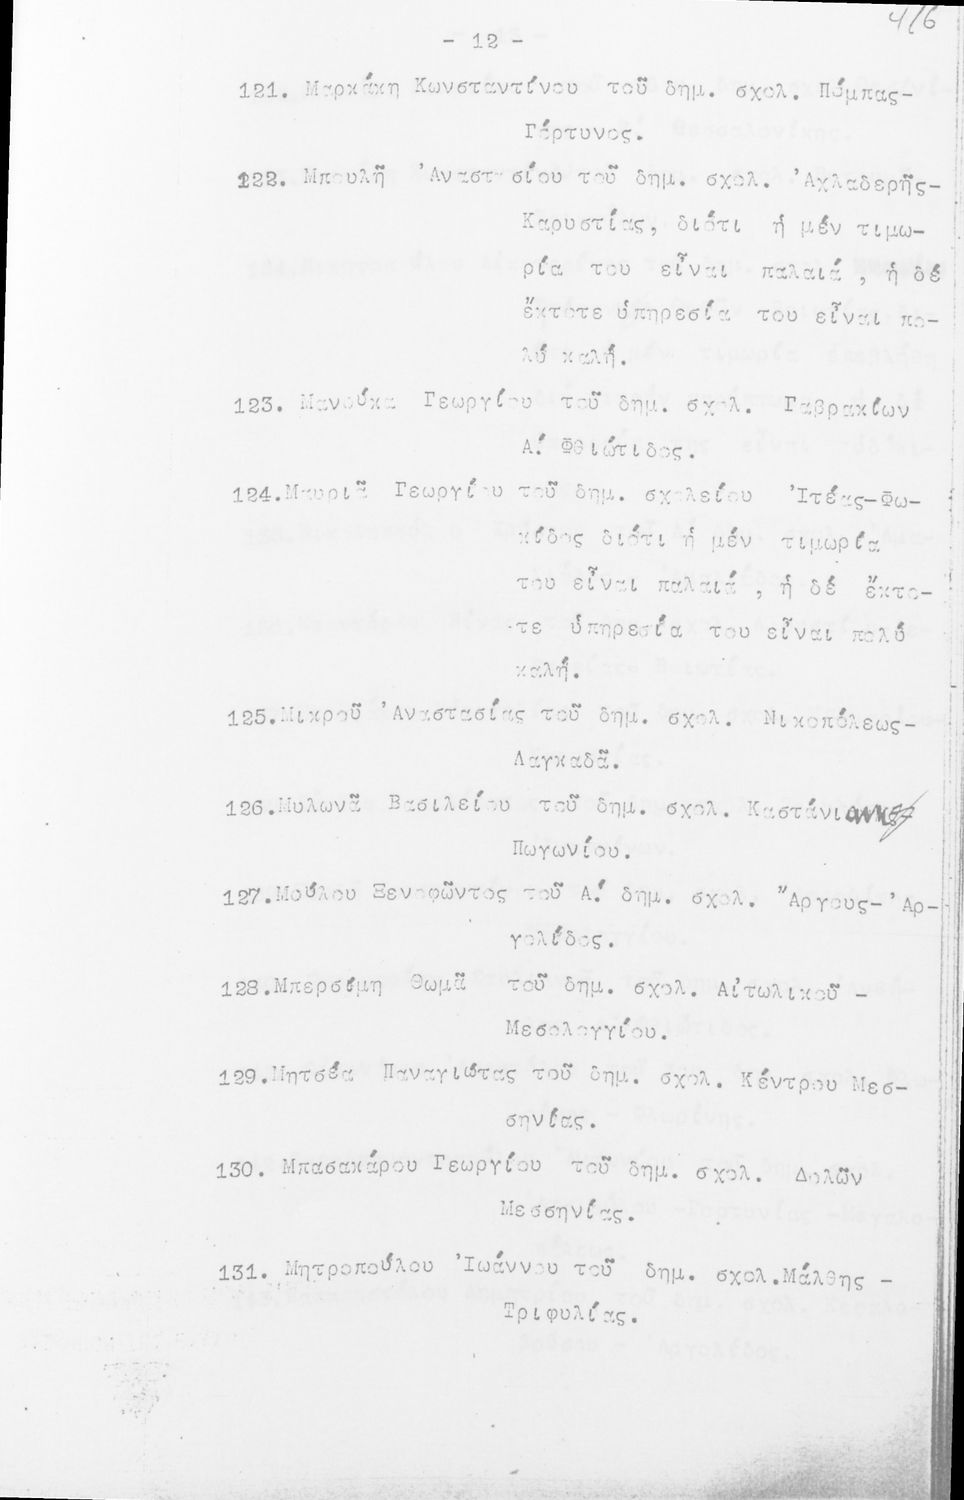 416
- 12 -
121. Μαρκάκη Κωνσταντίνου τοῦ δημ. σχολ. Πόμπας-
Γόρτυνος.
122. Μπουλῆ 'Αναστασίου τοῦ δημ. σχολ. 'Αχλαδερῆς-
Καρυστίας, διότι ἡ μέν τιμω-
ρία του εἶναι παλαιά, ἡ δέ
ἔκτοτε ὑπηρεσία του εἶναι πο-
λύ καλή.
123. Μανούκα Γεωργίου τοῦ δημ. σχολ. Γαβρακίων
Α! Φθιώτιδος.
124.Μαυριᾶ Γεωργίου τοῦ δημ. σχολείου 'Ιτέας-Φω-
κίδος διότι ἡ μέν τιμωρία
του εἶναι παλαιά, ἡ δέ ἔκτο-
τε ὑπηρεσία του εἶναι πολύ
καλή.
125.Μικροῦ 'Αναστασίας τοῦ δημ. σχολ. Νικοπόλεως-
Λαγκαδᾶ.
126.Μυλωνᾶ Βασιλείου τοῦ δημ. σχολ. Καστάνιανης
Πωγωνίου.
127.Μούλου Ξενοφῶντος τοῦ Α! δημ. σχολ. "Αργους-'Αρ-
γολίδος.
128.Μπερσίμη Θωμᾶ τοῦ δημ. σχολ. Αἰτωλικοῦ -
Μεσολογγίου.
129.Μητσέα Παναγιώτας τοῦ δημ. σχολ. Κέντρου Μεσ-
σηνίας.
130. Μπασακάρου Γεωργίου τοῦ δημ. σχολ. Δολῶν
Μεσσηνίας.
131. Μητροπούλου 'Ιωάννου τοῦ δημ. σχολ.Μάλθης -
Τριφυλίας.